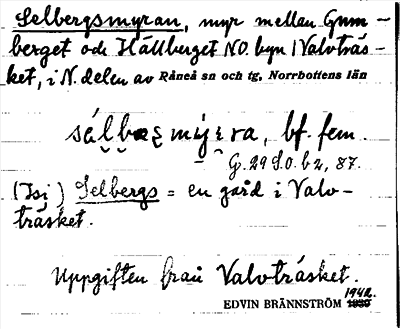 Selbergsmyran, myr mellan Gum-
berget och Hällberget NO. byn i Valvträs-
ket, i N. delen av Råneå sn och tg, Norrbottens län
bf. fem.
G. 29 S.O. b 2, 87.
Selbergs = en gård i Valv-
träsket.
Uppgiften från Valvträsket.
EDVIN BRÄNNSTRÖM 1942.